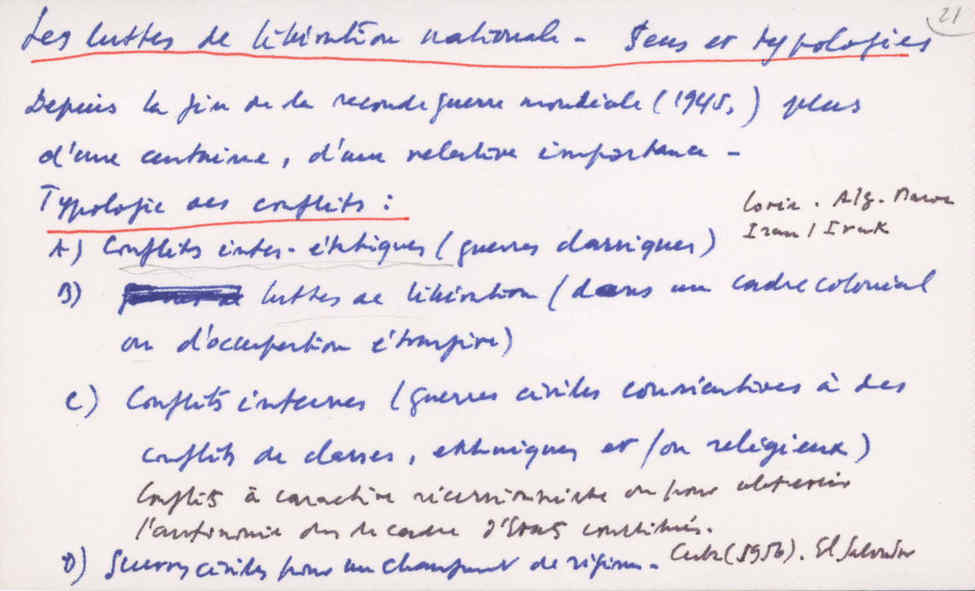 21
Les luttes de libération nationale - Sens et typologies
Depuis la fin de la seconde guerre mondiale (1945,) plus
d'une centaine, d'une relative importance -
Typologie des conflits :
Corée . Alg. Maroc
Iran / Irak
A) Conflits inter-étatiques (guerres classiques)
B) luttes de libération (dans un cadre colonial
ou d'occupation étrangère)
C) Conflits internes (guerres civiles consécutives à des
conflits de classes, ethniques et/ou religieux)
Conflits à caractère sécessionniste ou pour obtenir
l'autonomie dans le cadre d'États constitués.
D) Guerres civiles pour un changement de régime - Cuba (1956). El Salvador